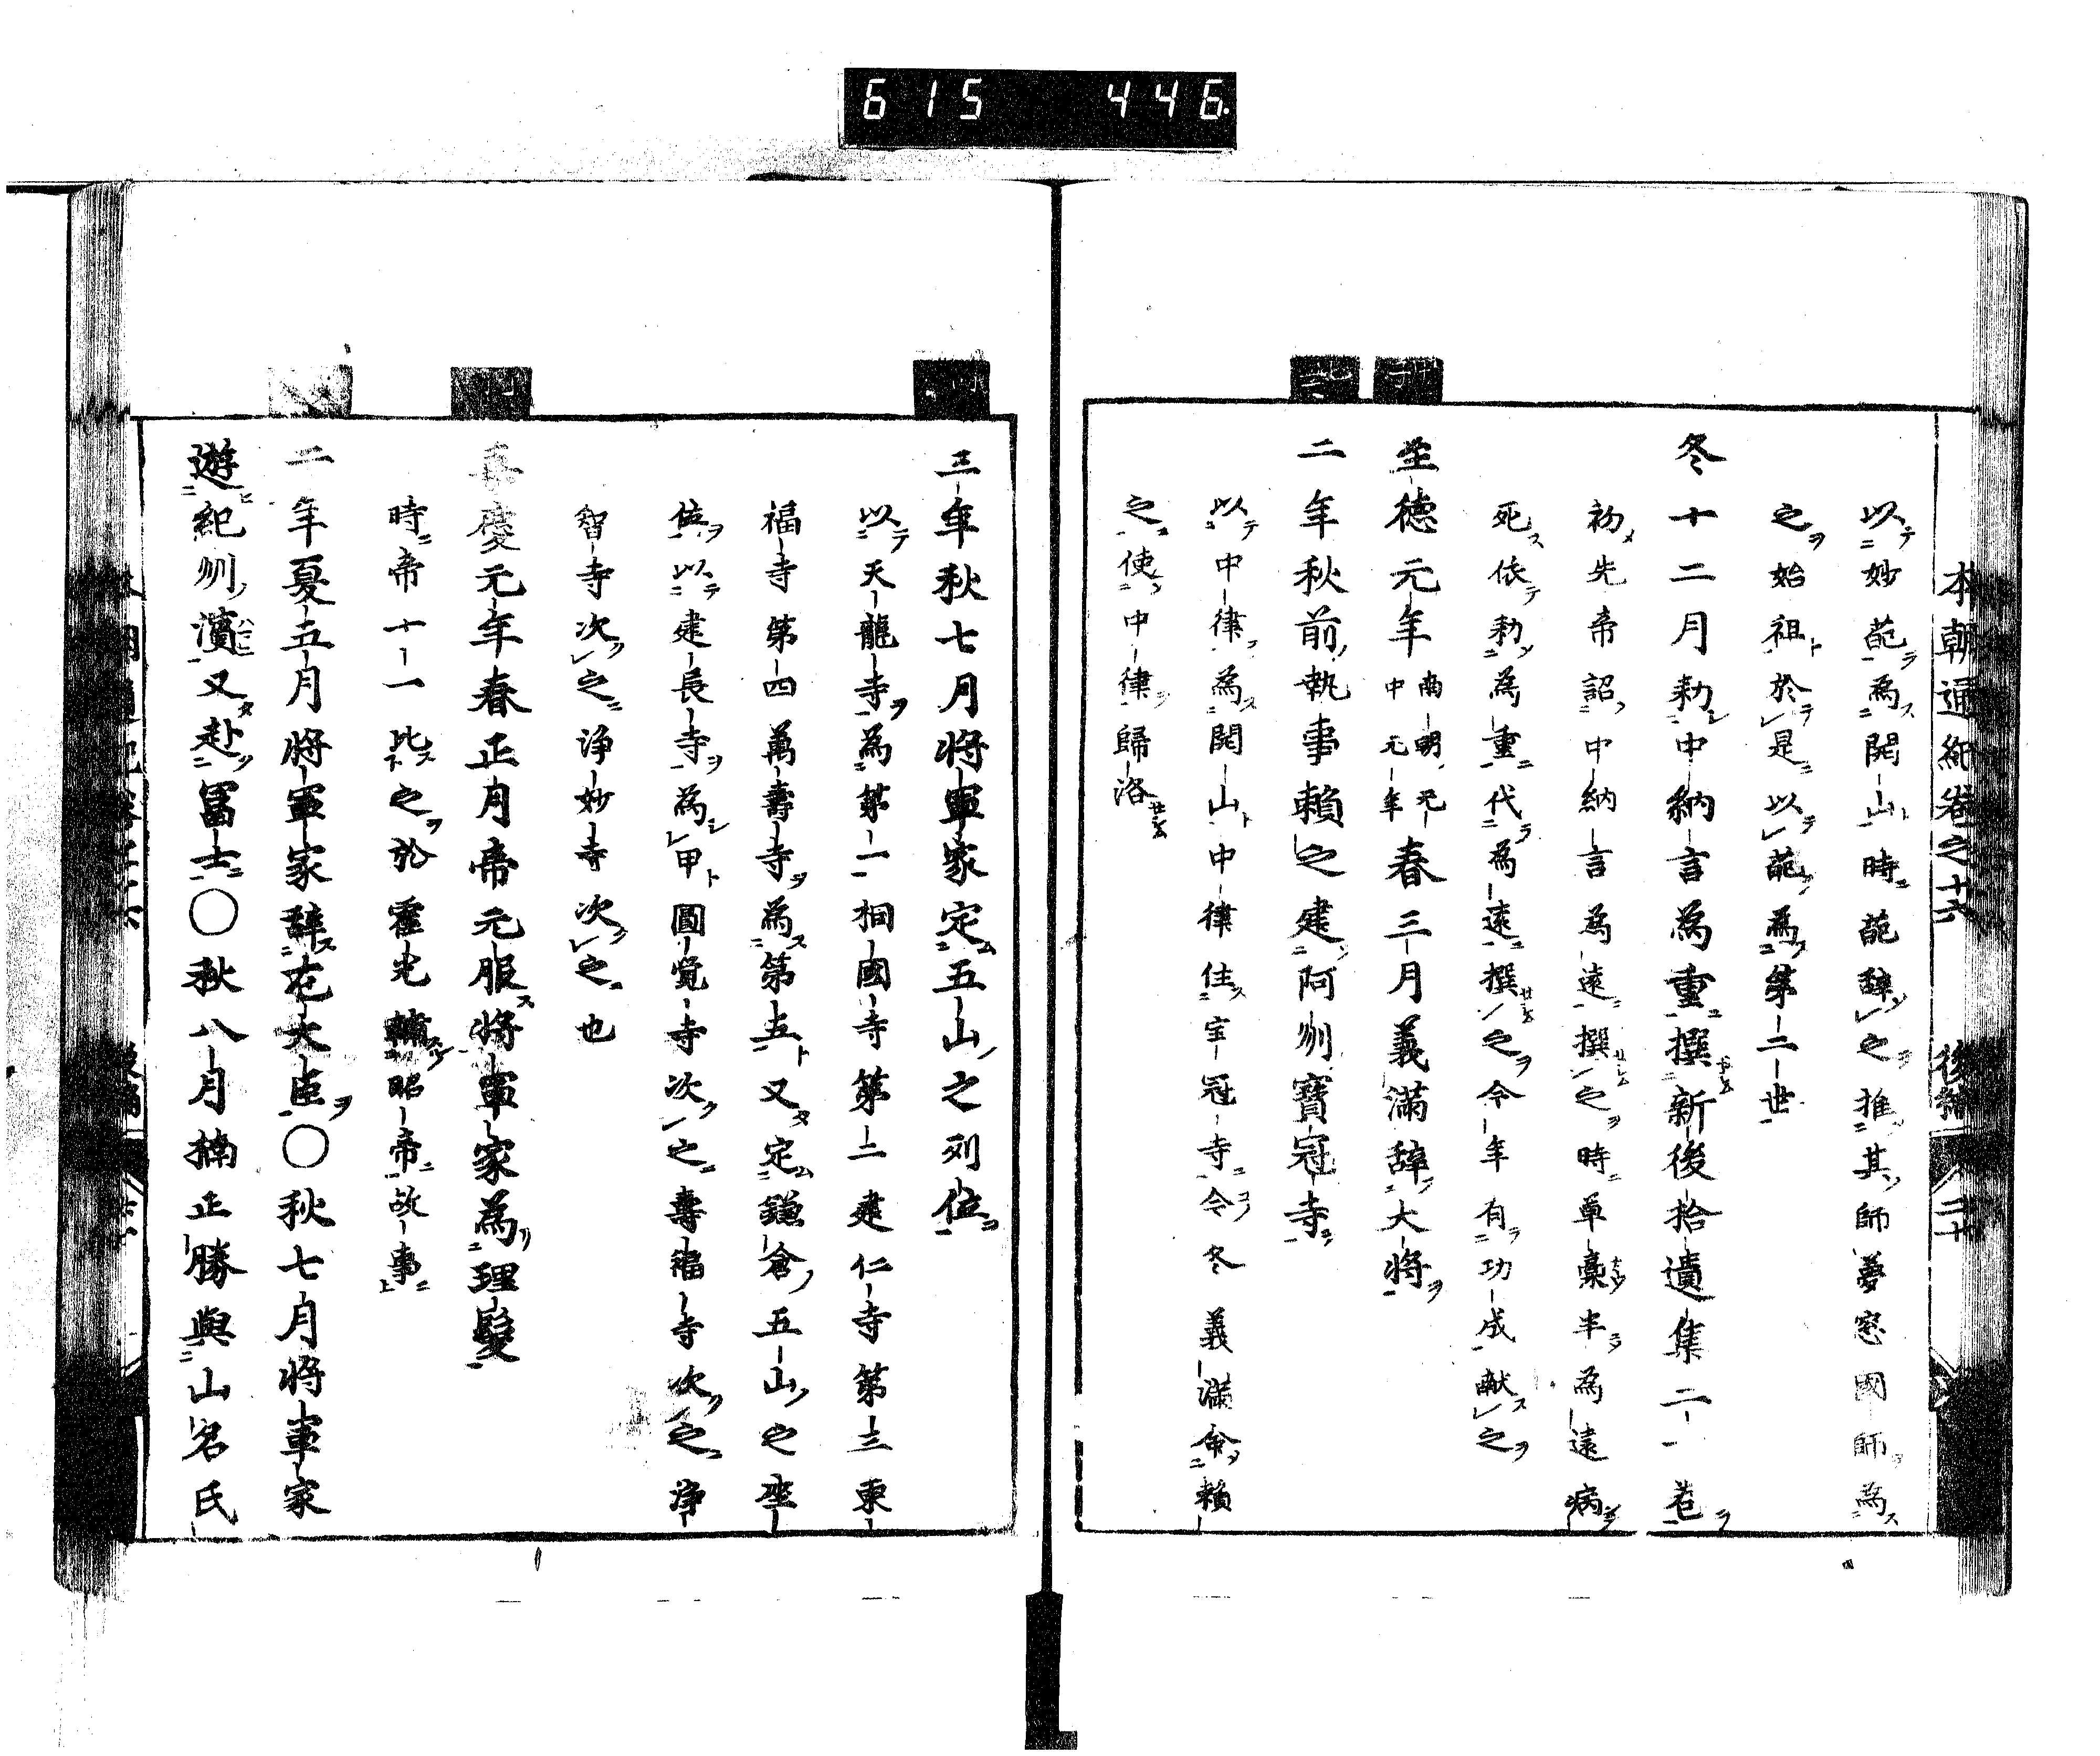 615 446.
本朝通紀卷之十六 後編 二十
以妙葩爲開山時葩辭之推其師夢窓國師爲
之始祖於是以葩爲第二世
冬十二月勅中納言爲重撰新後拾遺集二十卷
初先帝詔中納言爲遠撰之時草藁半爲遠病
死依勅爲重代爲遠撰之今年有功成献之
至徳元年南朝元中元年春三月義滿辞大将
二年秋前執事賴之建阿州寶冠寺
以中律爲開山中律住宝冠寺今冬義滿命賴
之使中律歸洛
三年秋七月将軍家定五山之列位
以天龍寺爲第一相國寺第二建仁寺第三東
福寺第四萬壽寺爲第五又定鎌倉五山之座
位以建長寺爲甲圓覚寺次之壽福寺次之浄
智寺次之浄妙寺次之也
嘉慶元年春正月帝元服将軍家爲理髮
時帝十一比之於霍光輔昭帝故事
二年夏五月将軍家辞左大臣〇秋七月将軍家
遊紀州濱又赴冨士〇秋八月楠正勝與山名氏